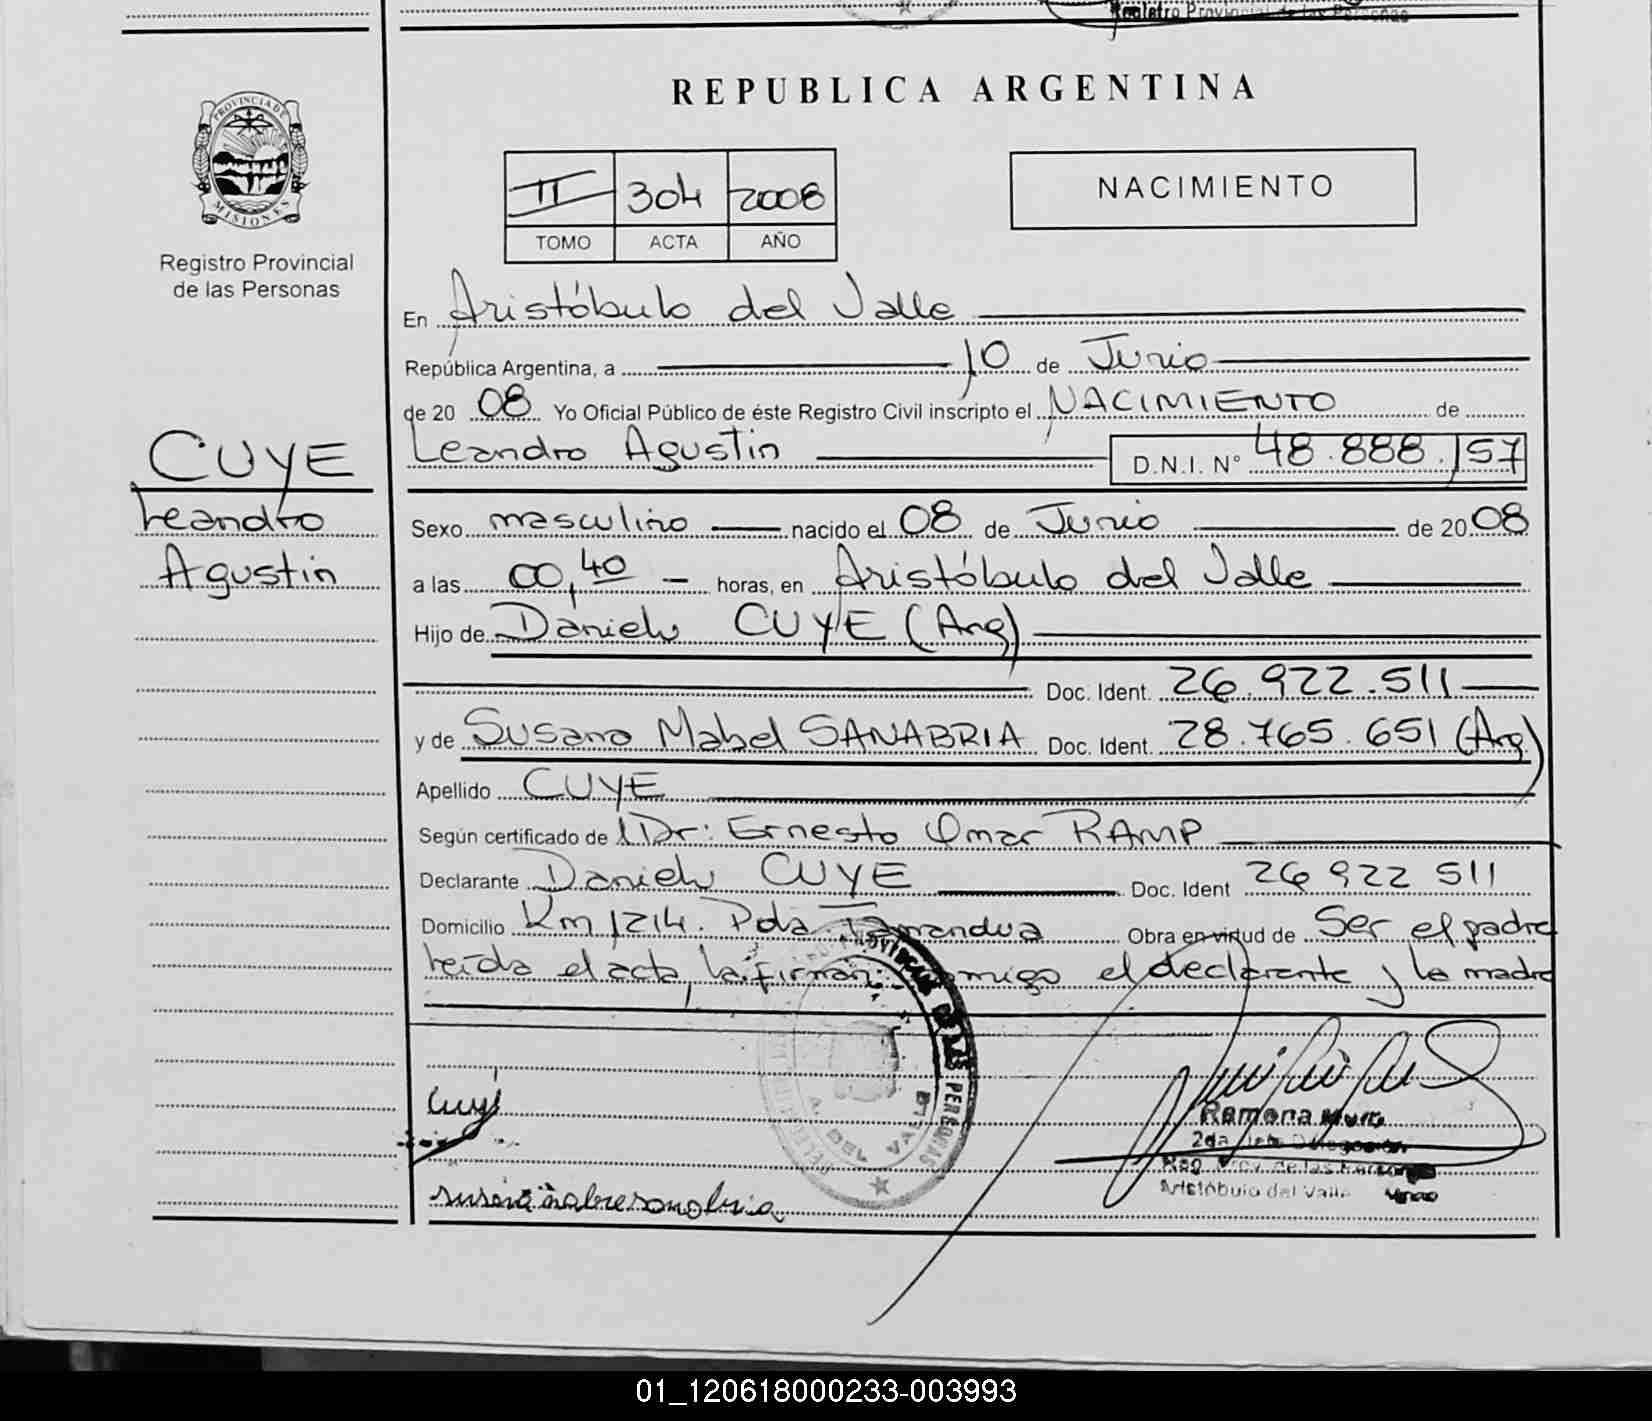 Registro Provincial de las Personas
REPUBLICA ARGENTINA
PROVINCIA DE
MISIONES
Registro Provincial
de las Personas
II 304 2008
TOMO ACTA AÑO
NACIMIENTO
En Aristóbulo del Valle
República Argentina, a 10 de Junio
de 20 08 Yo Oficial Público de éste Registro Civil inscripto el NACIMIENTO de
Leandro Agustin D.N.I. N° 48.888.157
CUYE
Leandro
Agustin
Sexo masculino nacido el 08 de Junio de 20 08
a las 00,40 horas, en Aristóbulo del Valle
Hijo de Daniel CUYE (Arg)
Doc. Ident. 26.922.511
y de Susana Mabel SANABRIA Doc. Ident. 28.765.651 (Arg)
Apellido CUYE
Según certificado de Dr: Ernesto Omar RAMP
Declarante Daniel CUYE Doc. Ident 26 922 511
Domicilio Km 1214. Pda Tamandua Obra en virtud de Ser el padre
leída el acta, la firman conmigo el declarante y la madre
PROVINCIAL DE LAS PERSONAS
A. DEL VALLE
Cuye
Ramona
2da Jefe Delegación
Reg. Prov. de las Personas
Aristóbulo del Valle
01_120618000233-003993